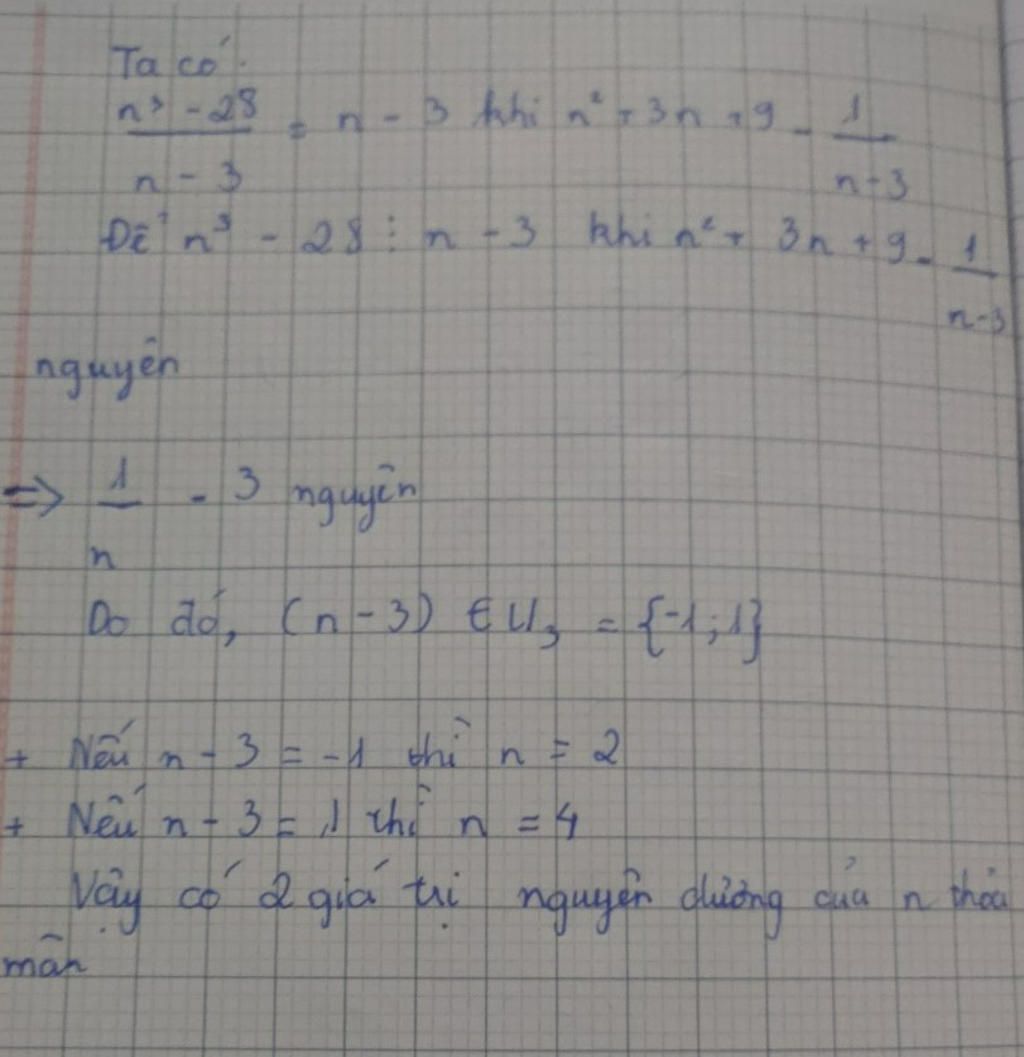 Ta có:
n³ - 28 / n - 3 = n - 3 khi n² + 3n + 9 - 1 / n - 3
Để n³ - 28 ⋮ n - 3 khi n² + 3n + 9 - 1 / n - 3
nguyên
=> 1 / n - 3 nguyên
Do đó, (n - 3) ∈ Ư₃ = {-1; 1}
+ Nếu n - 3 = -1 thì n = 2
+ Nếu n - 3 = 1 thì n = 4
Vậy có 2 giá trị nguyên dương của n thỏa
mãn